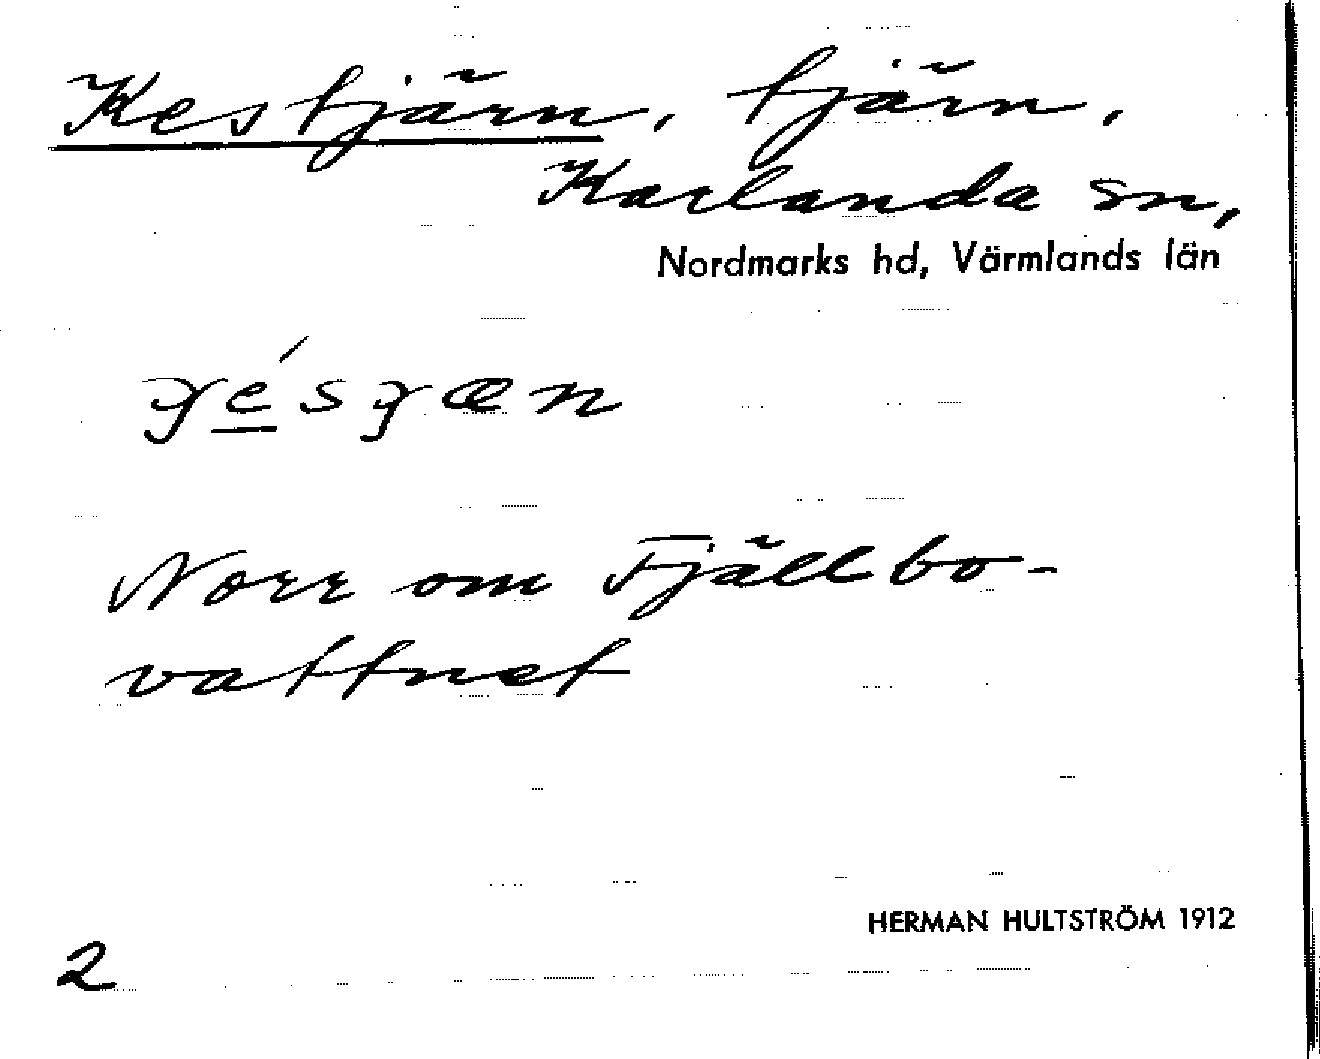 Kestjärn, tjärn,
Karlanda sn,
Nordmarks hd, Värmlands län
Norr om Fjällbo-
vattnet
HERMAN HULTSTRÖM 1912
2